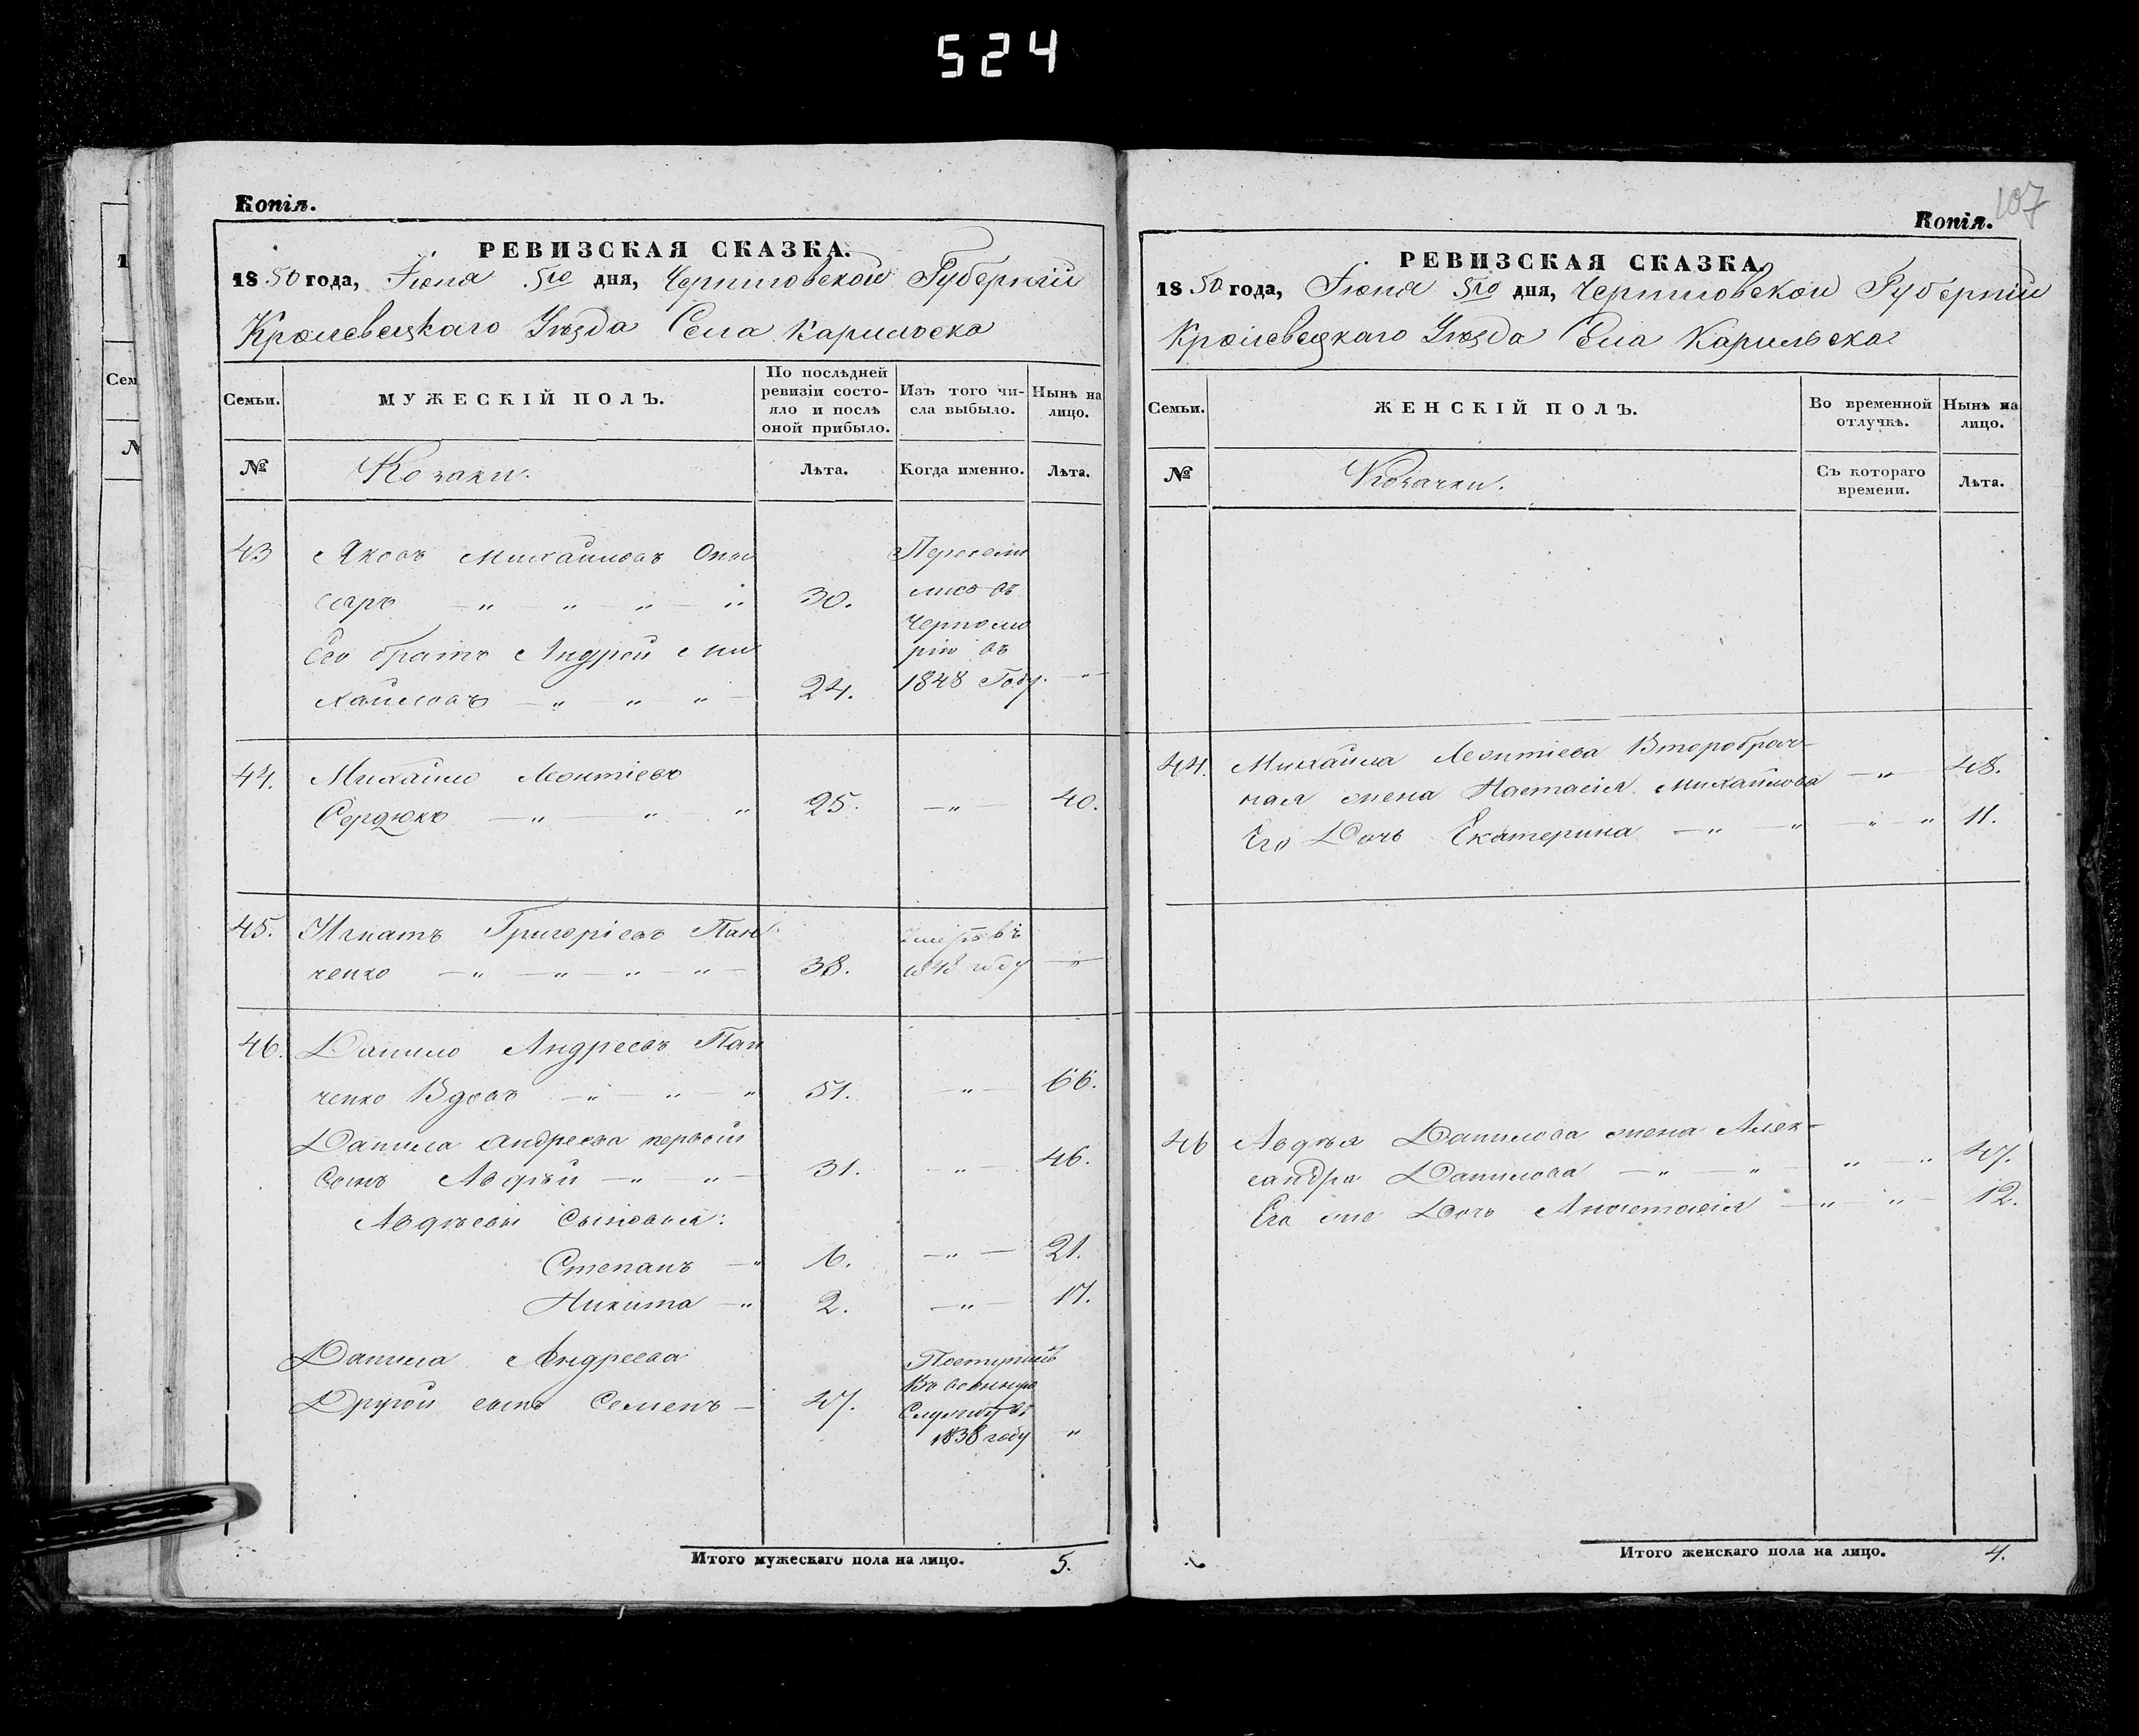 524
Копія.
РЕВИЗСКАЯ СКАЗКА.
1850 года, Іюня 5го дня, Черниговской Губерніи
Кролевецкаго Уѣзда Села Карильска
Семьи.
МУЖЕСКІЙ ПОЛЪ.
По послѣдней ревизіи состояло и послѣ оной прибыло.
Изъ того числа выбыло.
Нынѣ на лицо.
№
Козаки.
Лѣта.
Когда именно.
Лѣта.
43 Яковъ Михайловъ Пересели
саръ — „ — „ — „ — „ 30. лись въ
Черномо
Его братъ Андрей Ми рію въ
хайловъ — „ — „ — „ — 24. 1848 Году. — „ —
44. Михайло Леонтіевъ
Сердюкъ — „ — „ — „ 25. — „ — 40.
45. Игнатъ Григоріевъ Пан умеръ въ
ченко — „ — „ — „ — „ — 38. 1848 году — „ —
46. Данило Андреевъ Пан
ченко Вдовъ — „ — „ — „ 51. — „ — 66.
Данила Андреева первый
Сынъ Авдѣй — „ — „ — 31. — „ — 46.
Авдѣевы Сыновья:
Степанъ — „ 6. — „ — 21.
Никита — „ 2. — „ — 17.
Данила Андреева Поступилъ
Въ военную
Другой сынъ Семенъ — 27. Службу въ
1838 году „
Итого мужескаго пола на лицо. 5.
107
Копія.
РЕВИЗСКАЯ СКАЗКА.
1850 года, Іюня 5го дня, Черниговской Губерніи
Кролевецкаго Уѣзда Села Карильска
Семьи.
ЖЕНСКІЙ ПОЛЪ.
Во временной отлучкѣ.
Нынѣ на лицо.
№
Козачки.
Съ котораго времени.
Лѣта.
44. Михайла Леонтіева Второбрач-
ная жена Настасія Михайлова — „ — 48.
Его Дочь Екатерина — „ — „ — „ — „ 11.
46 Авдѣя Данилова жена Алек-
сандра Данилова — „ — „ — „ — „ 47.
Его же Дочь Анастасія — „ — „ — 12.
Итого женскаго пола на лицо. 4.